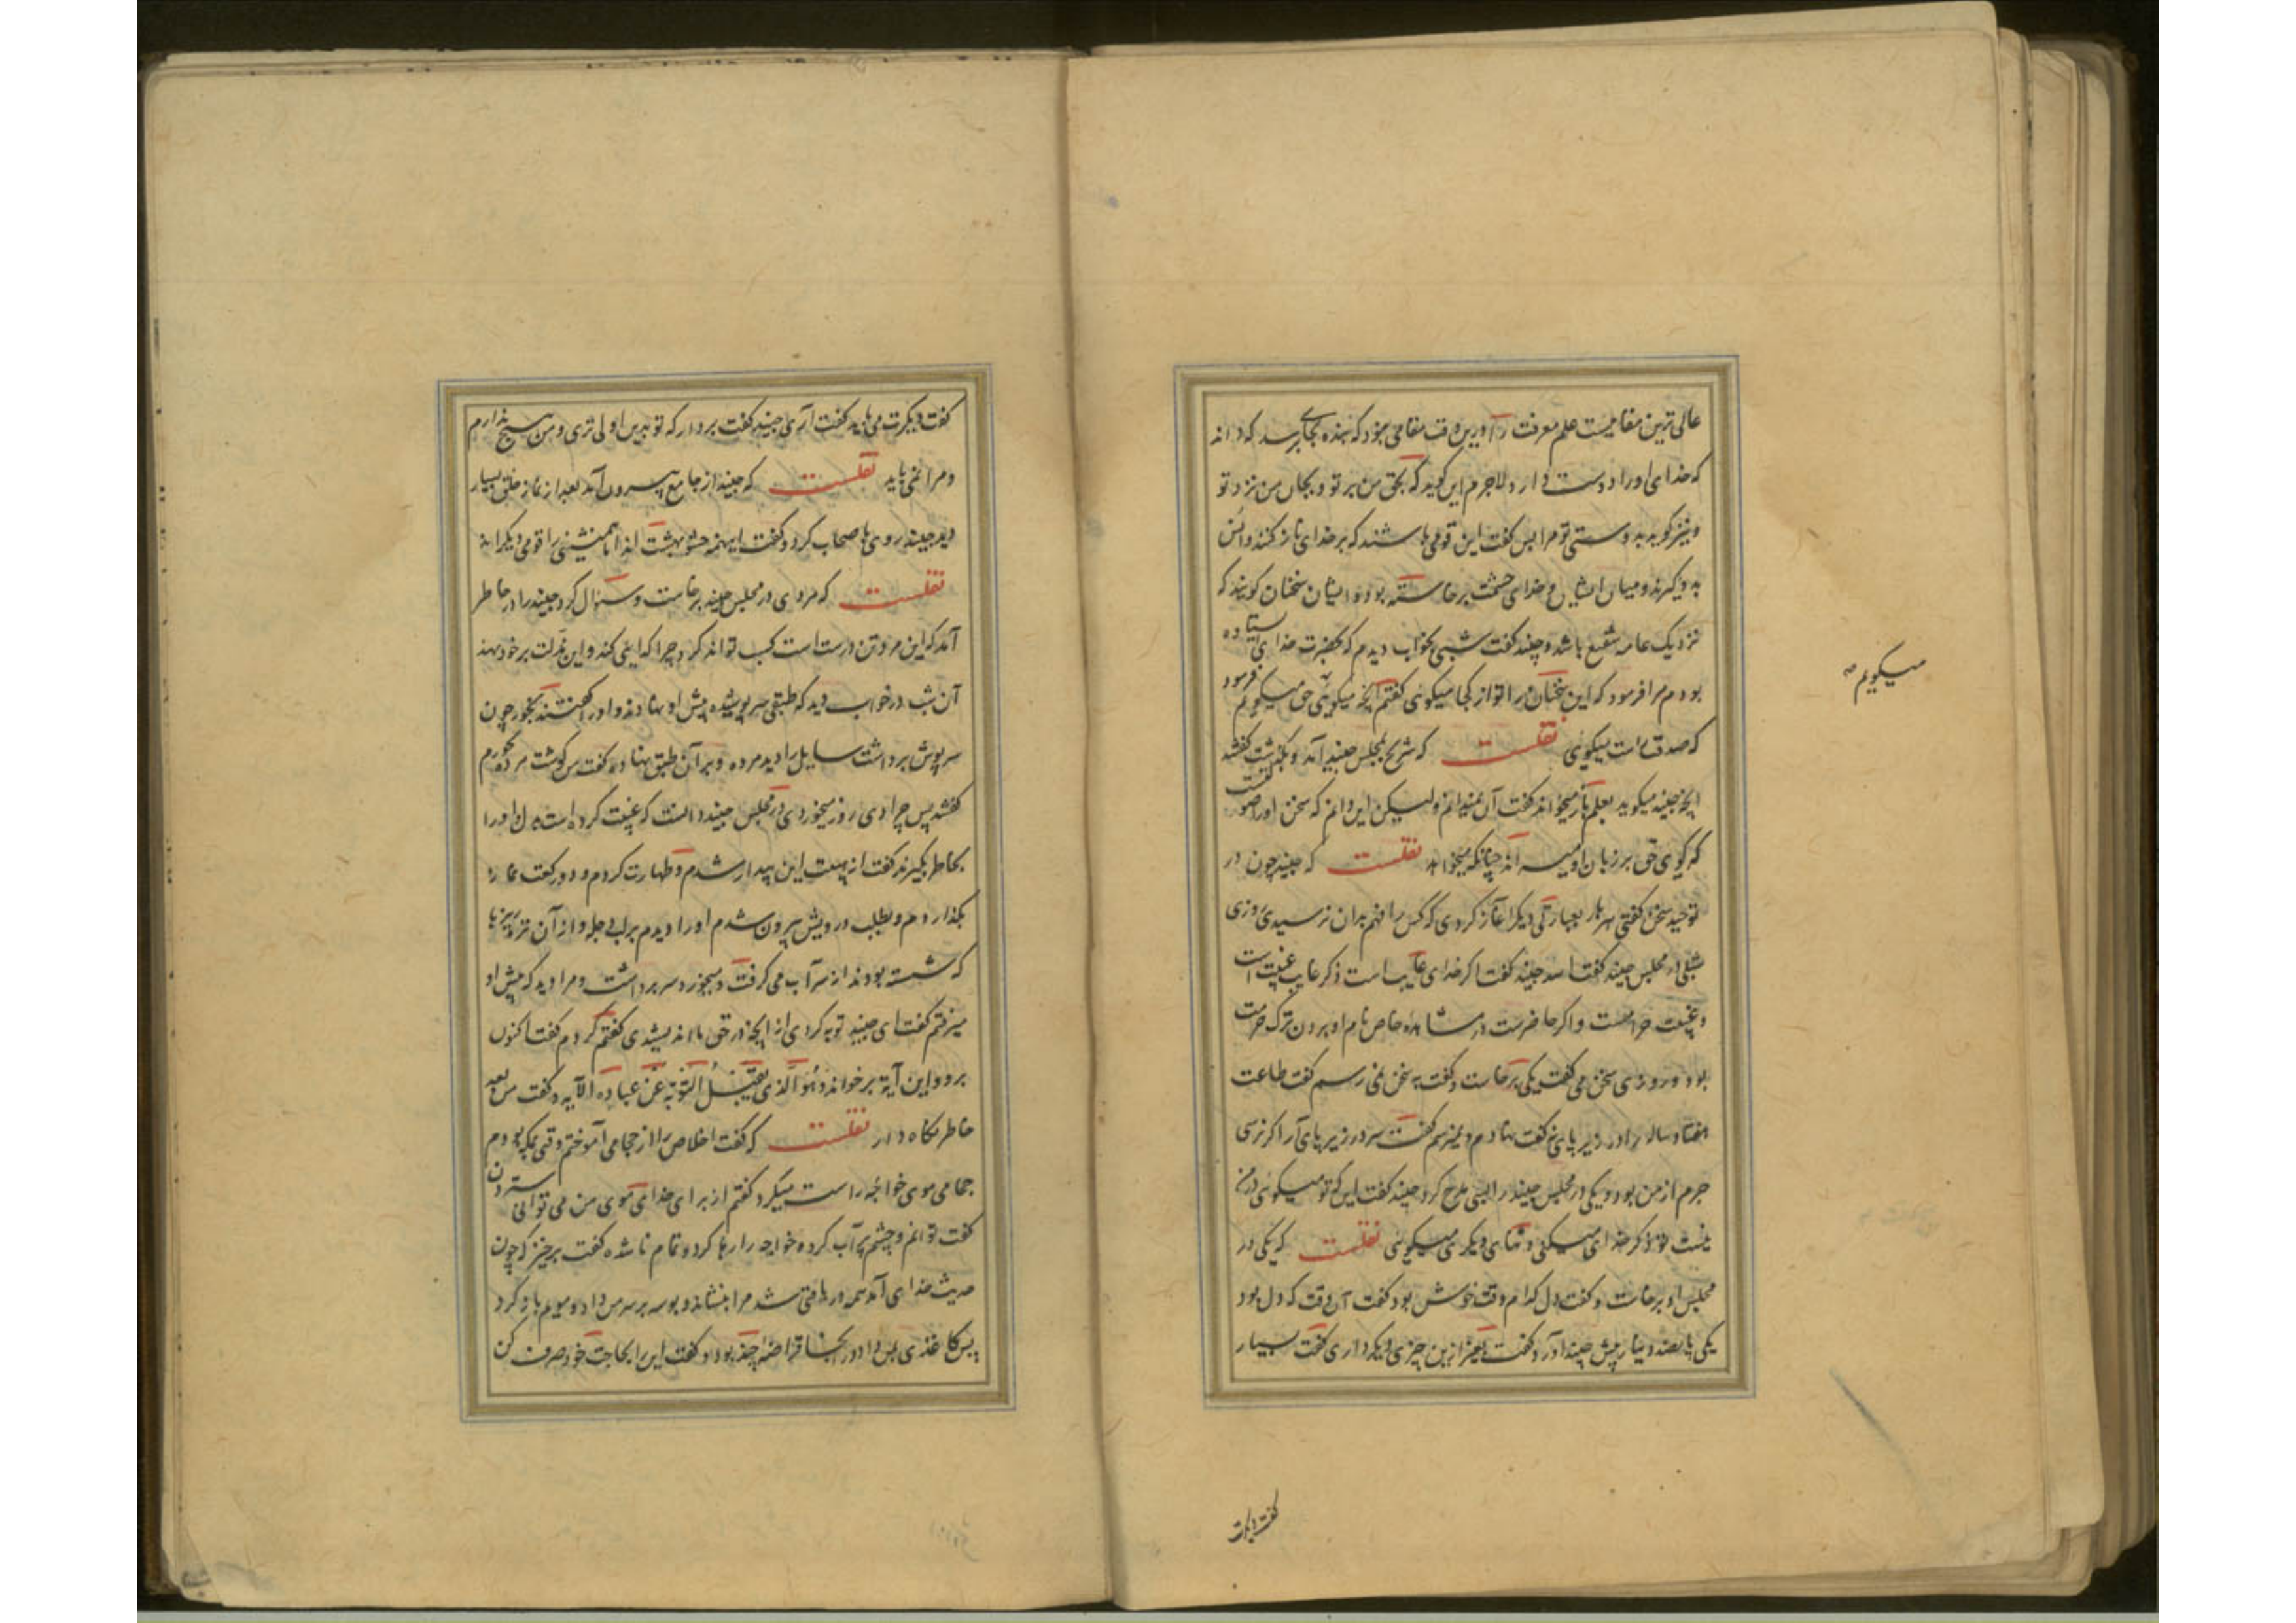 عالی ترین مقامیست علم معرفت را و درین وقت مقامی بود که بنده بجایی رسد که داند
که خدای او را دوست دارد لاجرم این گوید که بحق من بر تو و بجان من نزد تو
و نیز گوید بدوستی تو مرا پس گفت این قومی باشند که بر خدای ناز کنند و انس
بدو گیرند و میان ایشان و خدای حشمت برخاسته بود و ایشان سخنان گویند که
نزدیک عامه شنیع باشد و جنید گفت شبی بخواب دیدم که بحضرت خدای ایستاده
بودم مرا فرمود که این سخنان را تو از کجا میگوئی گفتم آنچه میگویم حق میگویم فرمود
که صدقت راست میگوئی نقلست که شریح بمجلس جنید آمد و بگذشت گفتند
آنچه جنید میگوید بعلم باز میخواند گفت آن نمیدانم ولیکن این دانم که سخن او را صولتست
که گوئی حق بر زبان او میراند چنانکه میخواهد نقلست که جنید چون در
توحید سخن گفتی هر بار بعبارتی دیگر آغاز کردی که کس را فهم بدان نرسیدی روزی
شبلی در مجلس جنید گفت الله جنید گفت اگر خدای غایب است ذکر غایب غیبت است
و غیبت حرامست و اگر حاضرست در مشاهده حاضر نام او بردن ترک حرمت
بود و روزی سخن می گفت یکی برخاست و گفت به سخن نمی رسم گفت طاعت
هفتاد ساله را در زیر پای نه گفت نهادم و نمیرسم گفت سر در زیر پای آر اگر نرسی
جرم از من بود و یکی در مجلس جنید را بسی مدح کرد جنید گفت این که تو میگوئی در من
نیست تو ذکر خدای میکنی و ثنای دیگری میگوئی نقلست که یکی در
مجلس او برخاست و گفت دل کدام وقت خوش بود گفت آن وقت که دل بود
یکی پانصد دینار پیش جنید آورد گفت بغیر ازین چیزی دیگر داری گفت بسیار
میگویم صح
گفت دیگرت
گفت دیگرت می باید گفت آری جنید گفت بردار که تو بدین اولی تری و من هیچ ندارم
و مرا نمی باید نقلست که جنید از جامع بیرون آمد بعد از نماز خلق بسیار
دید جنید روی باصحاب کرد و گفت این همه حشو بهشت اند اما همنشینی را قومی دیگرند
نقلست که مردی در مجلس جنید برخاست و سئوال کرد جنید را در خاطر
آمد که این مرد تن درست است کسب تواند کرد چرا گدایی کند و این مذلت بر خود نهد
آن شب در خواب دید که طبقی سرپوشیده پیش او نهادند و او را گفتند بخور چون
سرپوش برداشت سایل را دید مرده و بر آن طبق نهاده گفت من گوشت مرده نخورم
گفتند پس چرا دی روز میخوردی در مجلس جنید دانست که غیبت کرده است بدل او را
بخاطر بگیرند گفت از هیبت این بیدار شدم و طهارت کردم و دو رکعت نماز
بگذاردم و بطلب درویش بیرون شدم او را دیدم بر لب دجله و از آن تره ریزها
که شسته بودند از سر آب می گرفت و میخورد سر برداشت و مرا دید که پیش او
میرفتم گفت ای جنید توبه کردی از آنچه در حق ما اندیشیدی گفتم کردم گفت اکنون
برو و این آیة برخواند وَهُوَ الَّذی یَقْبَلُ التَّوْبَةَ عَنْ عِبادِه الآیه و گفت من بعد
خاطر نگاه دار نقلست که گفت اخلاص را از حجامی آموختم وقتی بمکه بودم
حجامی موی خواجه راست میکرد گفتم از برای خدای موی من می توانی ستردن
گفت توانم و چشم پر آب کرده خواجه را رها کرد و تمام ناشده گفت برخیز که چون
حدیث خدای آمد همه دریافتی شد مرا بنشاند و بوسه بر سر من داد و مویم باز کرد
پس کاغذی بمن داد در آنجا قراضه چند بود و گفت این را بحاجت خود صرف کن